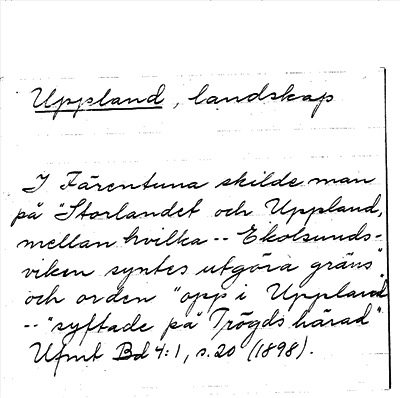 Uppland, landskap
I Färentuna skilde man
på "Storlandet och Uppland,
mellan hvilka -- Ekolsunds-
viken syntes utgöra gräns"
och orden "opp i Uppland
--" syftade på "Trögds härad"
Ufmt Bd 4:1, s. 20 (1898).